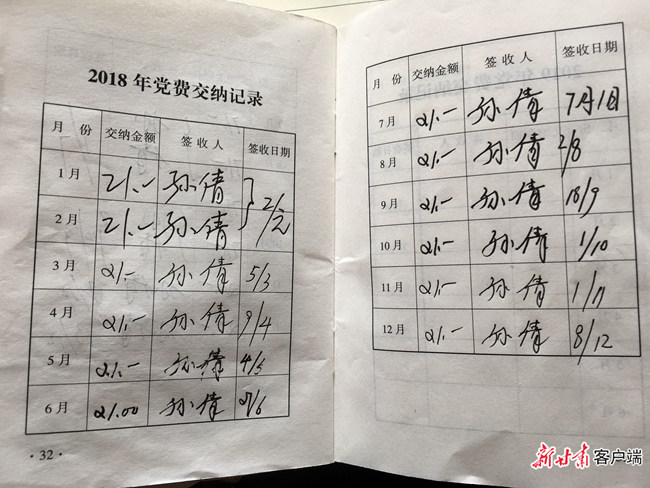 2018年党费交纳记录
月 份 交纳金额 签收人 签收日期
1月 21.- 孙倩
2月 21.- 孙倩
3月 21.- 孙倩 5/3
4月 21.- 孙倩 9/4
5月 21.- 孙倩 4/5
6月 21.00 孙倩
·32·
月 份 交纳金额 签收人 签收日期
7月 21.- 孙倩 7月1日
8月 21.- 孙倩
9月 21.- 孙倩 18/9
10月 21.- 孙倩 1/10
11月 21.- 孙倩 1/11
12月 21.- 孙倩 8/12
新甘肃客户端